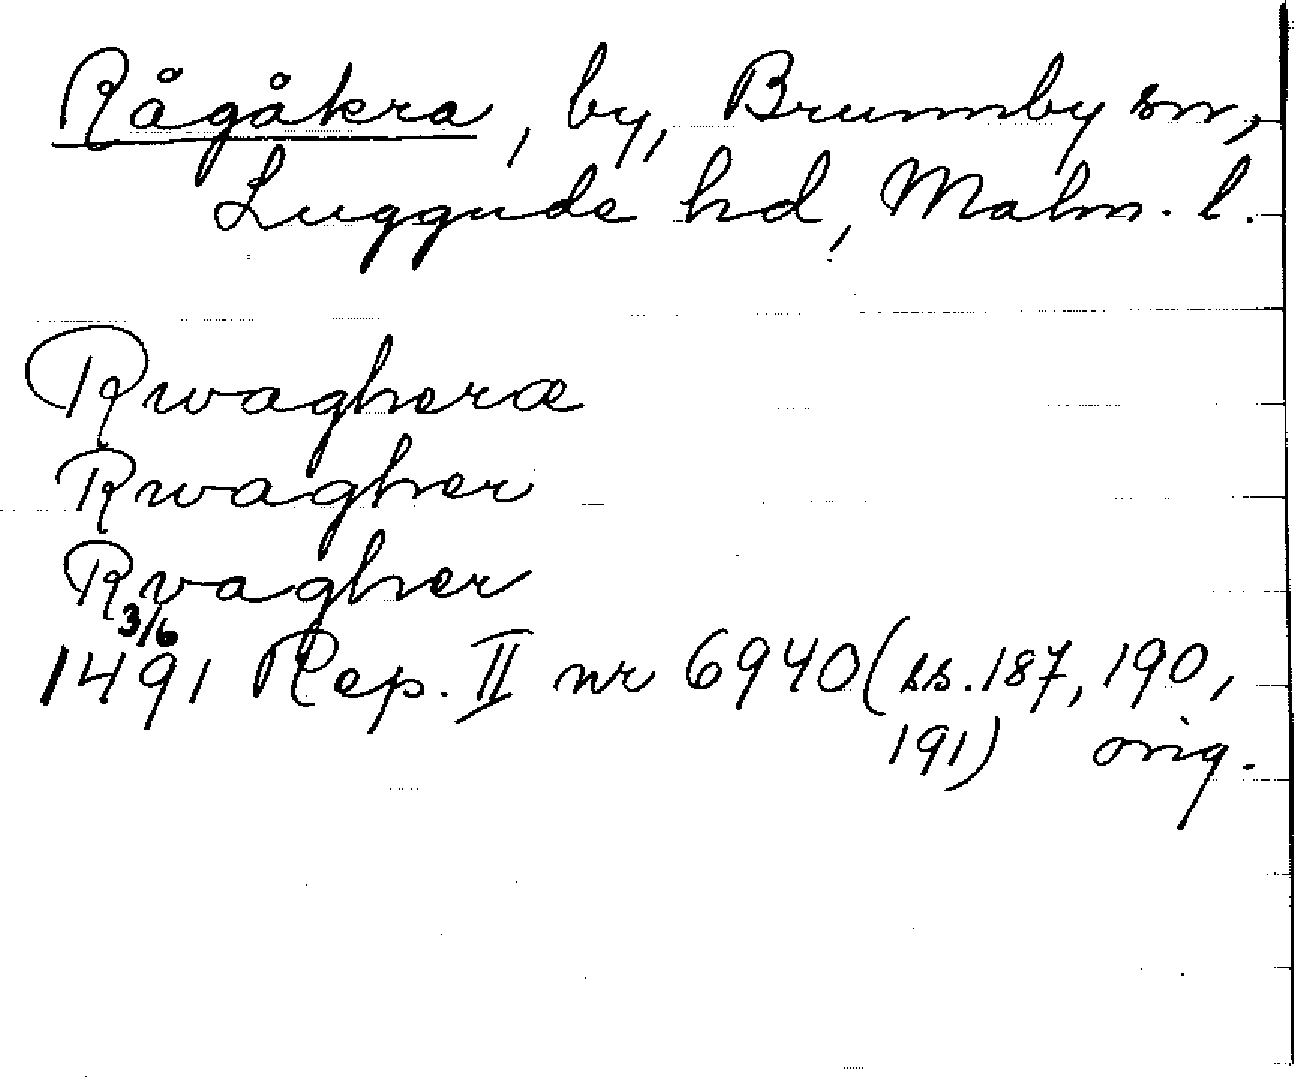 Rågåkra, by, Brunnby sn,
Luggude hd, Malm. l.
Rwagheræ
Rwagher
Rvagher
3/6
1491 Rep. II nr 6940 (ss. 187, 190,
191) orig.